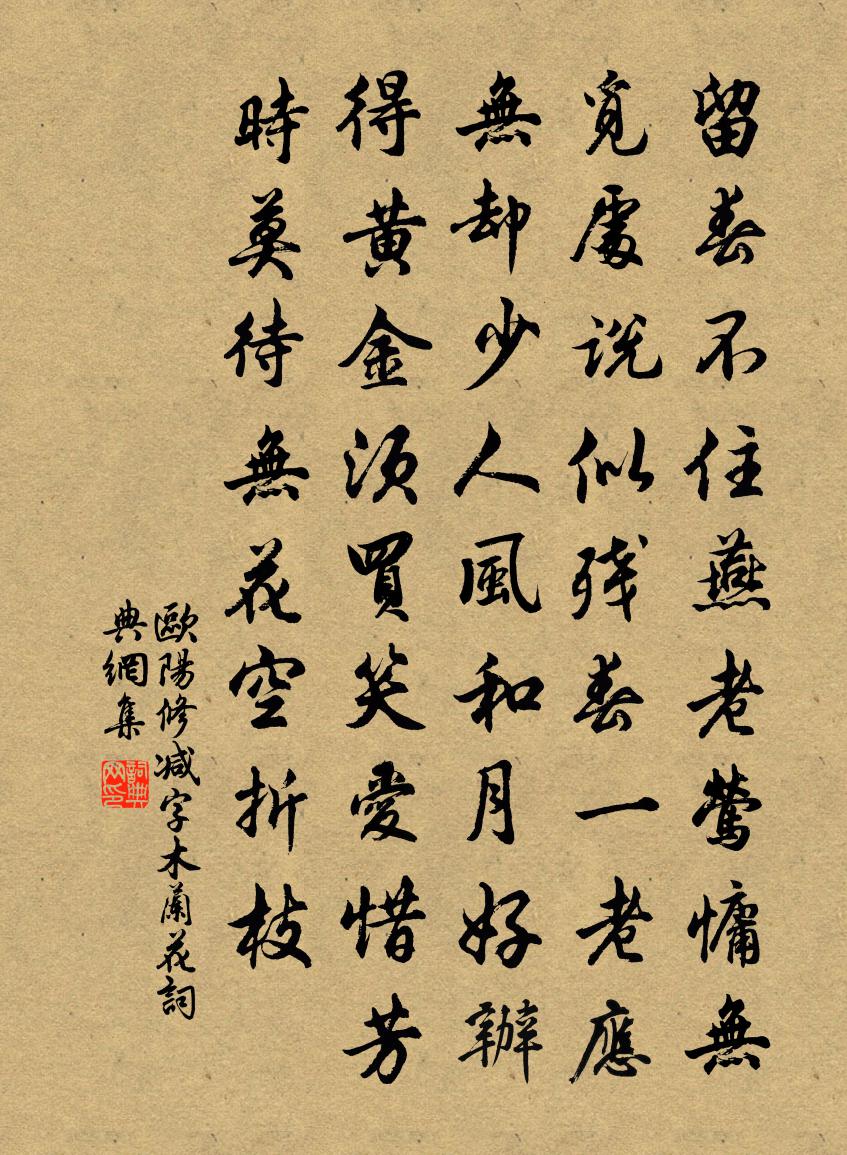 留春不住燕老鶯慵無
覓處説似残春一老應
無却少人風和月好辦
得黄金須買笑愛惜芳
時莫待無花空折枝
歐陽修减字木蘭花詞
典網集
詞典網印